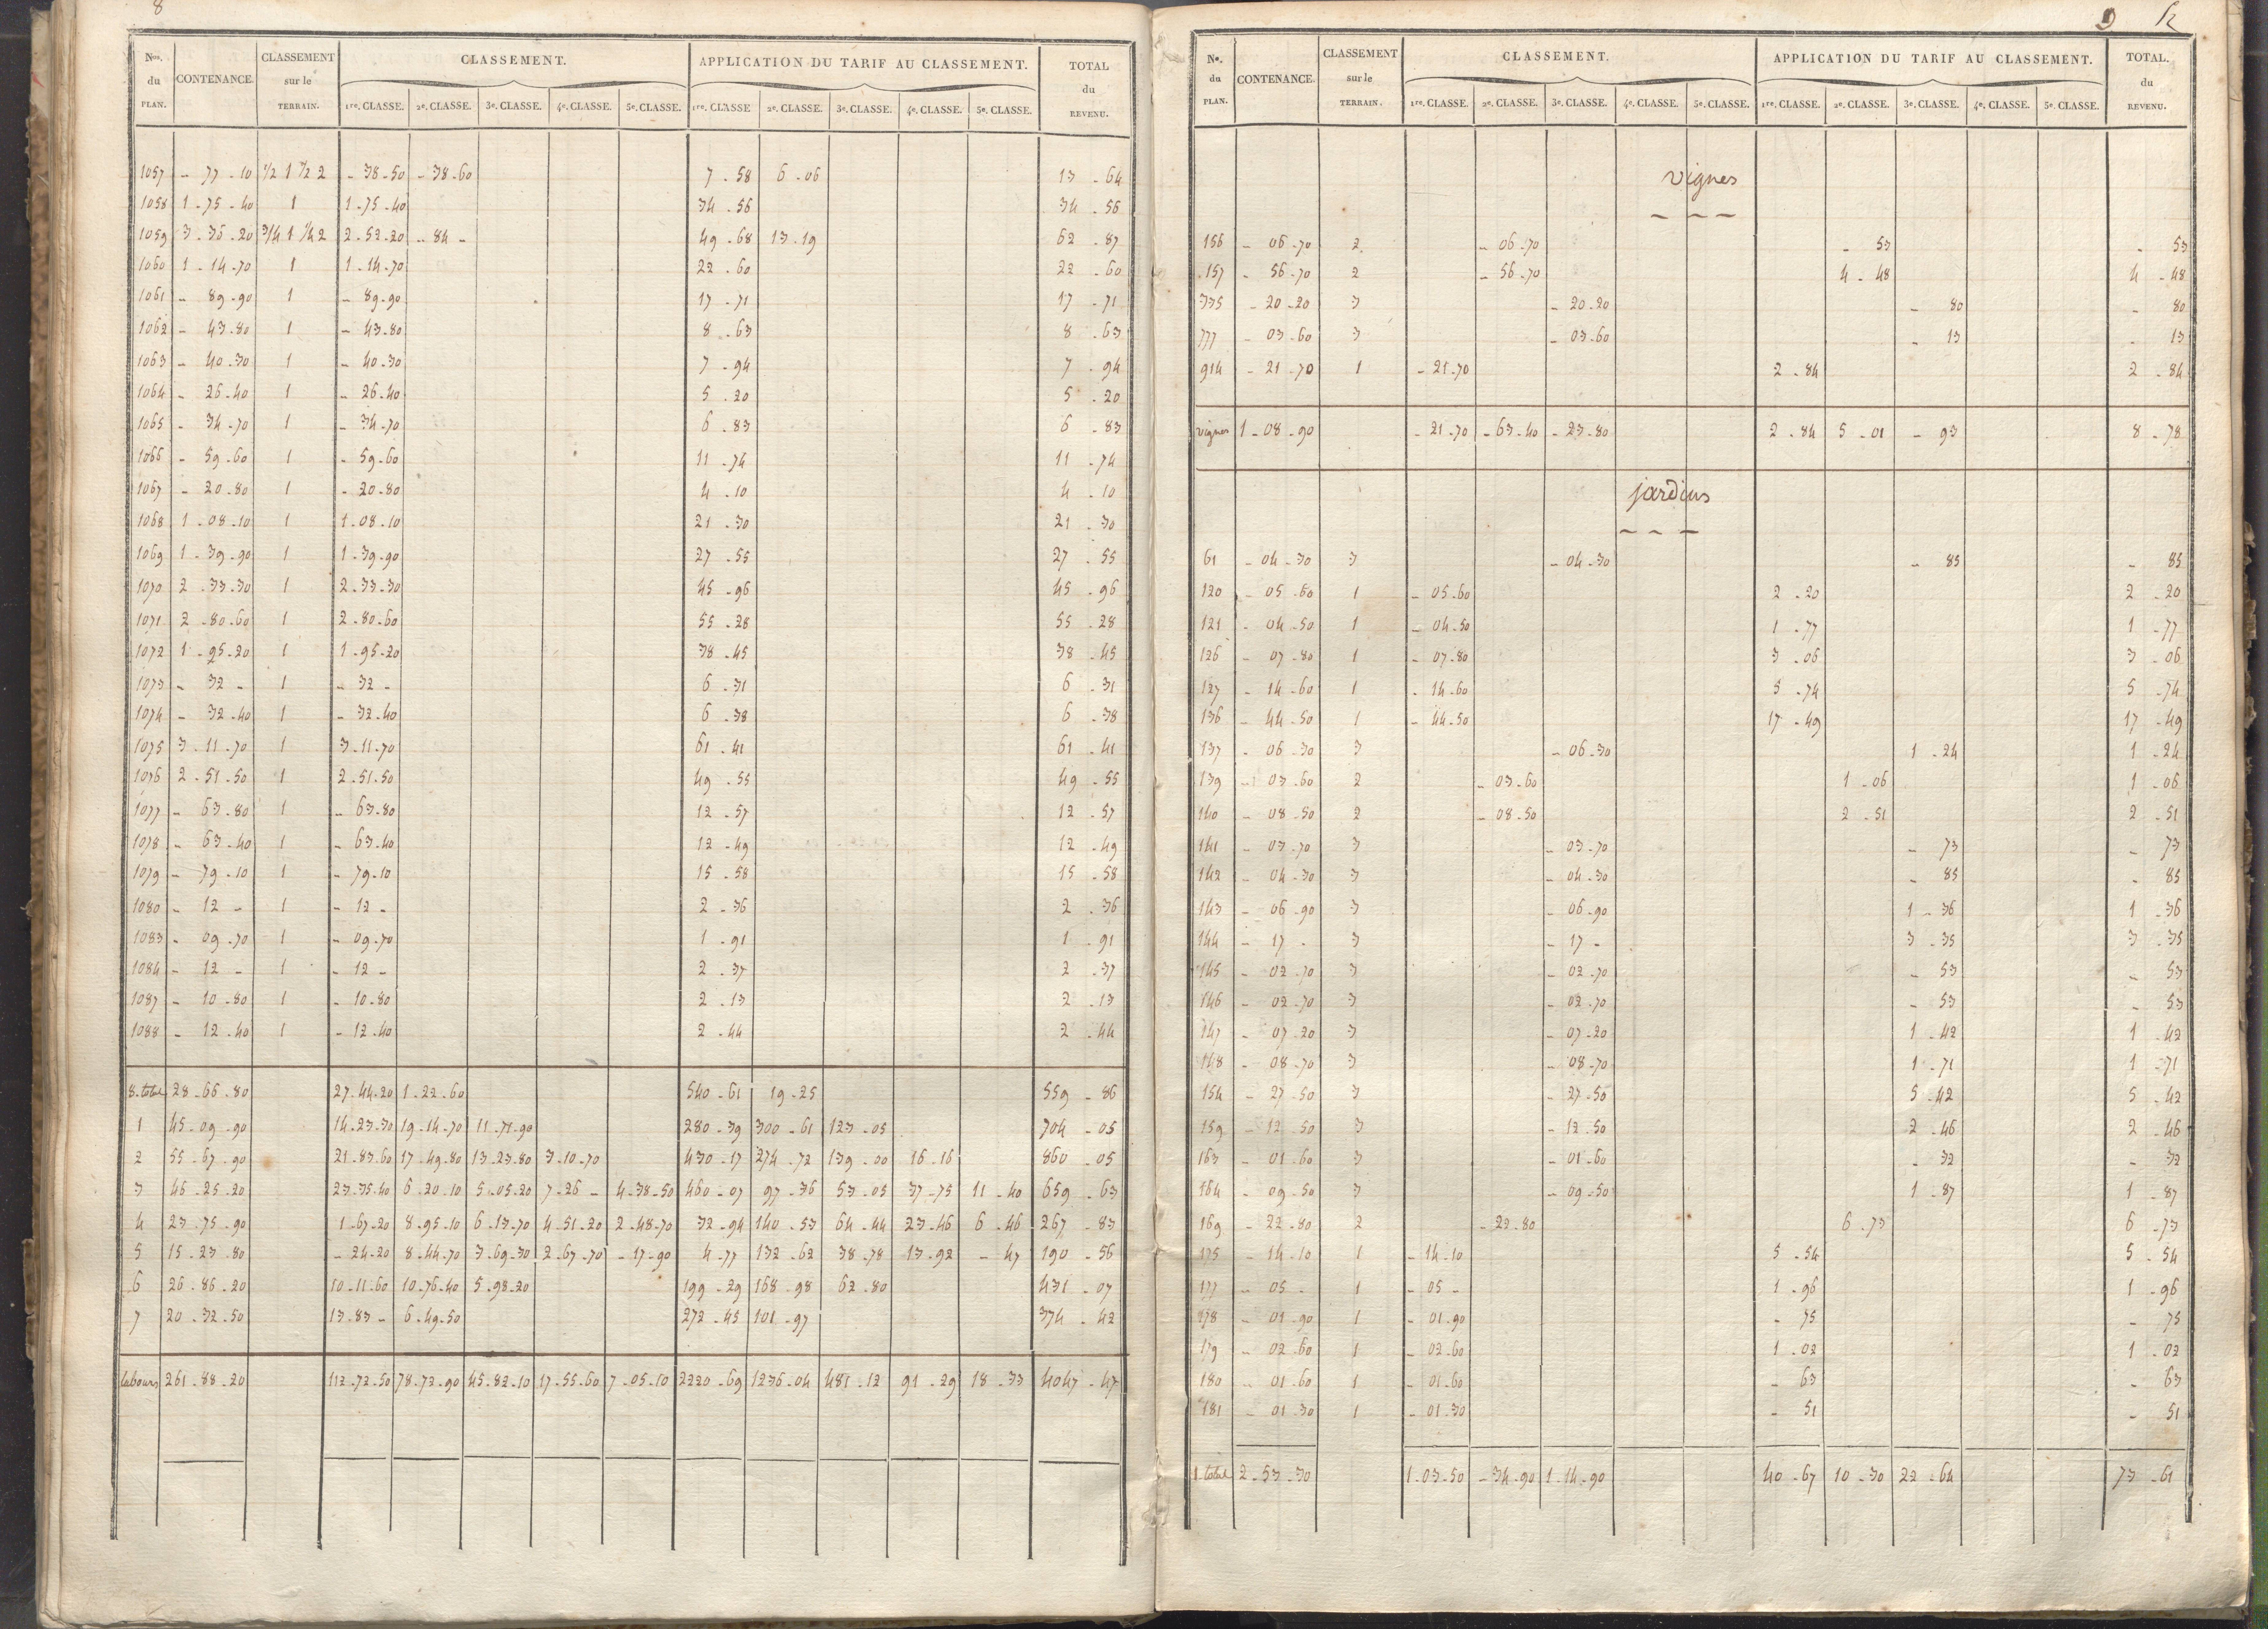 8
Nos. du PLAN. CONTENANCE. CLASSEMENT sur le TERRAIN. CLASSEMENT. APPLICATION DU TARIF AU CLASSEMENT. TOTAL du REVENU.
1re. CLASSE. 2e. CLASSE. 3e. CLASSE. 4e. CLASSE. 5e. CLASSE. 1re. CLASSE 2e. CLASSE. 3e. CLASSE. 4e. CLASSE. 5e. CLASSE.
1057 - 77 - 10 1/2 1 1/2 2 - 38 - 50 - 38 - 60 7 - 58 6 - 06 13 - 64
1058 1 - 75 - 40 1 1 - 75 - 40 34 - 56 34 - 56
1059 3 - 36 - 20 3/4 1 1/4 2 2 - 52 - 20 - 84 - 49 - 68 13 - 19 62 - 87
1060 1 - 14 - 70 1 1 - 14 - 70 22 - 60 22 - 60
1061 - 89 - 90 1 - 89 - 90 17 - 71 17 - 71
1062 - 43 - 80 1 - 43 - 80 8 - 63 8 - 63
1063 - 40 - 30 1 - 40 - 30 7 - 94 7 - 94
1064 - 26 - 40 1 - 26 - 40 5 - 20 5 - 20
1065 - 34 - 70 1 - 34 - 70 6 - 83 6 - 83
1066 - 59 - 60 1 - 59 - 60 11 - 74 11 - 74
1067 - 20 - 80 1 - 20 - 80 4 - 10 4 - 10
1068 1 - 08 - 10 1 1 - 08 - 10 21 - 30 21 - 30
1069 1 - 39 - 90 1 1 - 39 - 90 27 - 55 27 - 55
1070 2 - 33 - 30 1 2 - 33 - 30 45 - 96 45 - 96
1071 2 - 80 - 60 1 2 - 80 - 60 55 - 28 55 - 28
1072 1 - 95 - 20 1 1 - 95 - 20 38 - 45 38 - 45
1073 - 32 - 1 - 32 - 6 - 31 6 - 31
1074 - 32 - 40 1 - 32 - 40 6 - 38 6 - 38
1075 3 - 11 - 70 1 3 - 11 - 70 61 - 41 61 - 41
1076 2 - 51 - 50 1 2 - 51 - 50 49 - 55 49 - 55
1077 - 63 - 80 1 - 63 - 80 12 - 57 12 - 57
1078 - 63 - 40 1 - 63 - 40 12 - 49 12 - 49
1079 - 79 - 10 1 - 79 - 10 15 - 58 15 - 58
1080 - 12 - 1 - 12 - 2 - 36 2 - 36
1083 - 09 - 70 1 - 09 - 70 1 - 91 1 - 91
1084 - 12 - 1 - 12 - 2 - 37 2 - 37
1087 - 10 - 80 1 - 10 - 80 2 - 13 2 - 13
1088 - 12 - 40 1 - 12 - 40 2 - 44 2 - 44
8. total 28 - 66 - 80 27 - 44 - 20 1 - 22 - 60 540 - 61 19 - 25 559 - 86
1 45 - 09 - 90 14 - 23 - 30 19 - 14 - 70 11 - 71 - 90 280 - 39 300 - 61 123 - 05 704 - 05
2 55 - 67 - 90 21 - 83 - 60 17 - 49 - 80 13 - 23 - 80 3 - 10 - 70 430 - 17 274 - 72 139 - 00 16 - 16 860 - 05
3 46 - 25 - 20 23 - 35 - 40 6 - 20 - 10 5 - 05 - 20 7 - 26 - 4 - 38 - 50 460 - 07 97 - 36 53 - 05 37 - 75 11 - 40 659 - 63
4 23 - 75 - 90 1 - 67 - 20 8 - 95 - 10 6 - 13 - 70 4 - 51 - 20 2 - 48 - 70 32 - 94 140 - 53 64 - 44 23 - 46 6 - 46 267 - 83
5 15 - 23 - 80 - 24 - 20 8 - 44 - 70 3 - 69 - 30 2 - 67 - 70 - 17 - 90 4 - 77 132 - 62 38 - 78 13 - 92 - 47 190 - 56
6 26 - 86 - 20 10 - 11 - 60 10 - 76 - 40 5 - 98 - 20 199 - 29 168 - 98 62 - 80 431 - 07
7 20 - 32 - 50 13 - 83 - 6 - 49 - 50 272 - 45 101 - 97 374 - 42
labours 261 - 88 - 20 112 - 72 - 50 78 - 73 - 90 45 - 82 - 10 17 - 55 - 60 7 - 05 - 10 2220 - 69 1236 - 04 481 - 12 91 - 29 18 - 33 4047 - 47
9
No. du PLAN. CONTENANCE. CLASSEMENT sur le TERRAIN. CLASSEMENT. APPLICATION DU TARIF AU CLASSEMENT. TOTAL. du REVENU.
1re. CLASSE. 2e. CLASSE. 3e. CLASSE. 4e. CLASSE. 5e. CLASSE. 1re. CLASSE. 2e. CLASSE. 3e. CLASSE. 4e. CLASSE. 5e. CLASSE.
vignes
156 - 06 - 70 2 - 06 - 70 - 53 - 53
157 - 56 - 70 2 - 56 - 70 4 - 48 4 - 48
335 - 20 - 20 3 - 20 - 20 - 80 - 80
777 - 03 - 60 3 - 03 - 60 - 13 - 13
914 - 21 - 70 1 - 21 - 70 2 - 84 2 - 84
vignes 1 - 08 - 90 - 21 - 70 - 63 - 40 - 23 - 80 2 - 84 5 - 01 - 93 8 - 78
jardins
61 - 04 - 30 3 - 04 - 30 - 85 - 85
120 - 05 - 60 1 - 05 - 60 2 - 20 2 - 20
121 - 04 - 50 1 - 04 - 50 1 - 77 1 - 77
126 - 07 - 80 1 - 07 - 80 3 - 06 3 - 06
127 - 14 - 60 1 - 14 - 60 5 - 74 5 - 74
136 - 44 - 50 1 - 44 - 50 17 - 49 17 - 49
137 - 06 - 30 3 - 06 - 30 1 - 24 1 - 24
139 - 03 - 60 2 - 03 - 60 1 - 06 1 - 06
140 - 08 - 50 2 - 08 - 50 2 - 51 2 - 51
141 - 03 - 70 3 - 03 - 70 - 73 - 73
142 - 04 - 30 3 - 04 - 30 - 85 - 85
143 - 06 - 90 3 - 06 - 90 1 - 36 1 - 36
144 - 17 - 3 - 17 - 3 - 35 3 - 35
145 - 02 - 70 3 - 02 - 70 - 53 - 53
146 - 02 - 70 3 - 02 - 70 - 53 - 53
147 - 07 - 20 3 - 07 - 20 1 - 42 1 - 42
148 - 08 - 70 3 - 08 - 70 1 - 71 1 - 71
154 - 27 - 50 3 - 27 - 50 5 - 42 5 - 42
159 - 12 - 50 3 - 12 - 50 2 - 46 2 - 46
163 - 01 - 60 3 - 01 - 60 - 32 - 32
164 - 09 - 50 3 - 09 - 50 1 - 87 1 - 87
169 - 22 - 80 2 - 22 - 80 6 - 73 6 - 73
175 - 14 - 10 1 - 14 - 10 5 - 54 5 - 54
177 - 05 - 1 - 05 - 1 - 96 1 - 96
178 - 01 - 90 1 - 01 - 90 - 75 - 75
179 - 02 - 60 1 - 02 - 60 1 - 02 1 - 02
180 - 01 - 60 1 - 01 - 60 - 63 - 63
181 - 01 - 30 1 - 01 - 30 - 51 - 51
1. total 2 - 53 - 30 1 - 03 - 50 - 34 - 90 1 - 14 - 90 40 - 67 10 - 30 22 - 64 73 - 61